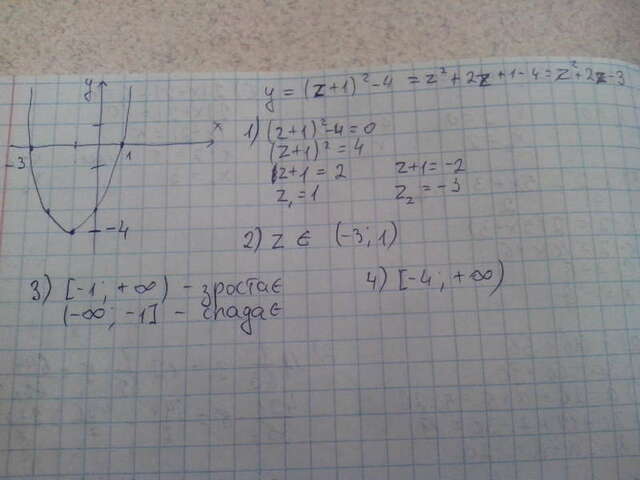 y = (z+1)² - 4 = z² + 2z + 1 - 4 = z² + 2z - 3
y
x
-3
1
-4
1) (z+1)² - 4 = 0
(z+1)² = 4
z+1 = 2 z+1 = -2
z₁ = 1 z₂ = -3
2) z ∈ (-3; 1)
3) [-1; +∞) - зростає
(-∞; -1] - спадає
4) [-4; +∞)